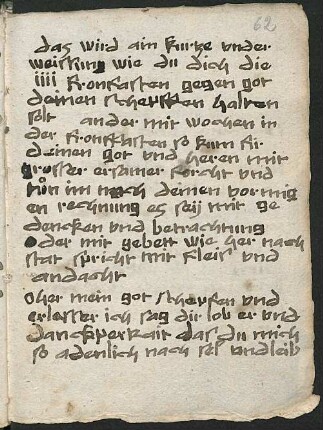 62
das wird ain kurtze vnder
weissung wie du dich die
iiii fronfasten gegen got
deinen schepffen halten
solt an der mit wochen in
der fronfasten so kum für
deinen got vnd heren mit
grosser ersamer forcht vnd
tün im nach deinen vormig
en rechnung es seÿ mit ge
dencken vnd betrachtung
oder mit gebett wie her nach
stat spricht mit fleis vnd
andacht
Oher mein got schepfen vnd
erlesser ich sag dir lob er vnd
danckperkait das du mich
so adenlich nach sel vnd leib